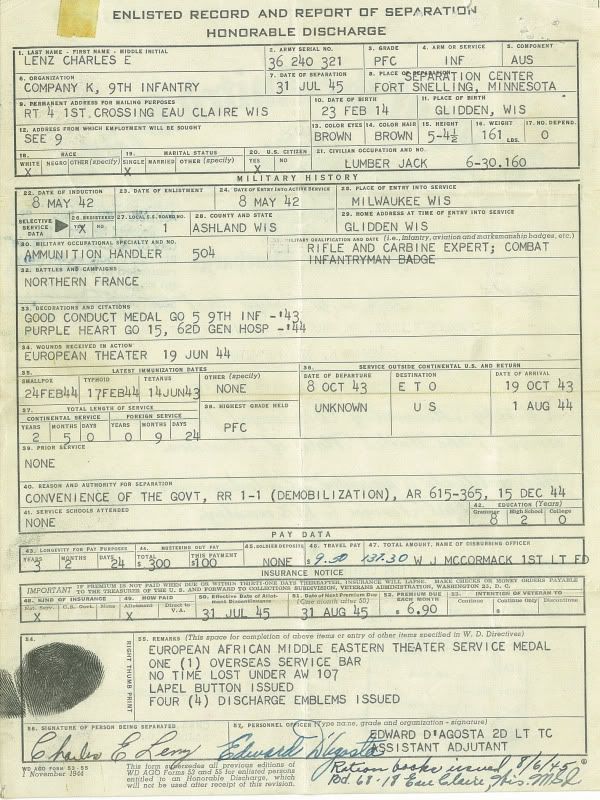 ENLISTED RECORD AND REPORT OF SEPARATION
HONORABLE DISCHARGE
1. LAST NAME - FIRST NAME - MIDDLE INITIAL 2. ARMY SERIAL NO. 3. GRADE 4. ARM OR SERVICE 5. COMPONENT
LENZ CHARLES E 36 240 321 PFC INF AUS
6. ORGANIZATION 7. DATE OF SEPARATION 8. PLACE OF SEPARATION
COMPANY K, 9TH INFANTRY 31 JUL 45 SEPARATION CENTER
FORT SNELLING, MINNESOTA
9. PERMANENT ADDRESS FOR MAILING PURPOSES 10. DATE OF BIRTH 11. PLACE OF BIRTH
RT 4 1ST.CROSSING EAU CLAIRE WIS 23 FEB 14 GLIDDEN, WIS
12. ADDRESS FROM WHICH EMPLOYMENT WILL BE SOUGHT 13. COLOR EYES 14. COLOR HAIR 15. HEIGHT 16. WEIGHT 17. NO. DEPEND.
SEE 9 BROWN BROWN 5-4½ 161 LBS. 0
18. RACE 19. MARITAL STATUS 20. U.S. CITIZEN 21. CIVILIAN OCCUPATION AND NO.
WHITE NEGRO OTHER (specify) SINGLE MARRIED OTHER (specify) YES NO
X X X LUMBER JACK 6-30.160
MILITARY HISTORY
22. DATE OF INDUCTION 23. DATE OF ENLISTMENT 24. DATE OF ENTRY INTO ACTIVE SERVICE 25. PLACE OF ENTRY INTO SERVICE
8 MAY 42 8 MAY 42 MILWAUKEE WIS
SELECTIVE SERVICE DATA 26. REGISTERED 27. LOCAL S.S. BOARD NO. 28. COUNTY AND STATE 29. HOME ADDRESS AT TIME OF ENTRY INTO SERVICE
YES X NO 1 ASHLAND WIS GLIDDEN WIS
30. MILITARY OCCUPATIONAL SPECIALTY AND NO. 31. MILITARY QUALIFICATION AND DATE (i.e., infantry, aviation and marksmanship badges, etc.)
AMMUNITION HANDLER 504 RIFLE AND CARBINE EXPERT; COMBAT
INFANTRYMAN BADGE
32. BATTLES AND CAMPAIGNS
NORTHERN FRANCE
33. DECORATIONS AND CITATIONS
GOOD CONDUCT MEDAL GO 5 9TH INF -'43
PURPLE HEART GO 15, 62D GEN HOSP -'44
34. WOUNDS RECEIVED IN ACTION
EUROPEAN THEATER 19 JUN 44
35. LATEST IMMUNIZATION DATES 36. SERVICE OUTSIDE CONTINENTAL U.S. AND RETURN
SMALLPOX TYPHOID TETANUS OTHER (specify) DATE OF DEPARTURE DESTINATION DATE OF ARRIVAL
24FEB44 17FEB44 14JUN43 NONE 8 OCT 43 E T O 19 OCT 43
37. TOTAL LENGTH OF SERVICE 38. HIGHEST GRADE HELD UNKNOWN U S 1 AUG 44
CONTINENTAL SERVICE FOREIGN SERVICE
YEARS MONTHS DAYS YEARS MONTHS DAYS
2 5 0 0 9 24 PFC
39. PRIOR SERVICE
NONE
40. REASON AND AUTHORITY FOR SEPARATION
CONVENIENCE OF THE GOVT, RR 1-1 (DEMOBILIZATION), AR 615-365, 15 DEC 44
41. SERVICE SCHOOLS ATTENDED 42. EDUCATION (Years)
Grammar High School College
NONE 8 2 0
PAY DATA
43. LONGEVITY FOR PAY PURPOSES 44. MUSTERING OUT PAY 45. SOLDIER DEPOSITS 46. TRAVEL PAY 47. TOTAL AMOUNT, NAME OF DISBURSING OFFICER
YEARS MONTHS DAYS TOTAL THIS PAYMENT
3 2 24 $ 300 $100 NONE $ 9.50 137.30 W J MCCORMACK 1ST LT FD
INSURANCE NOTICE
IMPORTANT IF PREMIUM IS NOT PAID WHEN DUE OR WITHIN THIRTY-ONE DAYS THEREAFTER, INSURANCE WILL LAPSE. MAKE CHECKS OR MONEY ORDERS PAYABLE
TO THE TREASURER OF THE U. S. AND FORWARD TO COLLECTIONS SUBDIVISION, VETERANS ADMINISTRATION, WASHINGTON 25, D. C.
48. KIND OF INSURANCE 49. HOW PAID 50. Effective Date of Allotment Discontinuance 51. Date of Next Premium Due (One month after 50) 52. PREMIUM DUE EACH MONTH 53. INTENTION OF VETERAN TO
Nat. Serv. U.S. Govt. None Allotment Direct to V.A. Continue Continue Only Discontinue
X X 31 JUL 45 31 AUG 45 $ 6.90 $
54. RIGHT THUMB PRINT 55. REMARKS (This space for completion of above items or entry of other items specified in W. D. Directives)
EUROPEAN AFRICAN MIDDLE EASTERN THEATER SERVICE MEDAL
ONE (1) OVERSEAS SERVICE BAR
NO TIME LOST UNDER AW 107
LAPEL BUTTON ISSUED
FOUR (4) DISCHARGE EMBLEMS ISSUED
56. SIGNATURE OF PERSON BEING SEPARATED 57. PERSONNEL OFFICER (Type name, grade and organization - signature)
Charles E Lenz Edward D'Agosta EDWARD D'AGOSTA 2D LT TC
ASSISTANT ADJUTANT
WD AGO FORM 53-55
1 November 1944
This form supersedes all previous editions of
WD AGO Forms 53 and 55 for enlisted persons
entitled to an Honorable Discharge, which
will not be used after receipt of this revision.
Ration books issued 8/6/45
Bd. 68-18 Eau Claire, Wis.